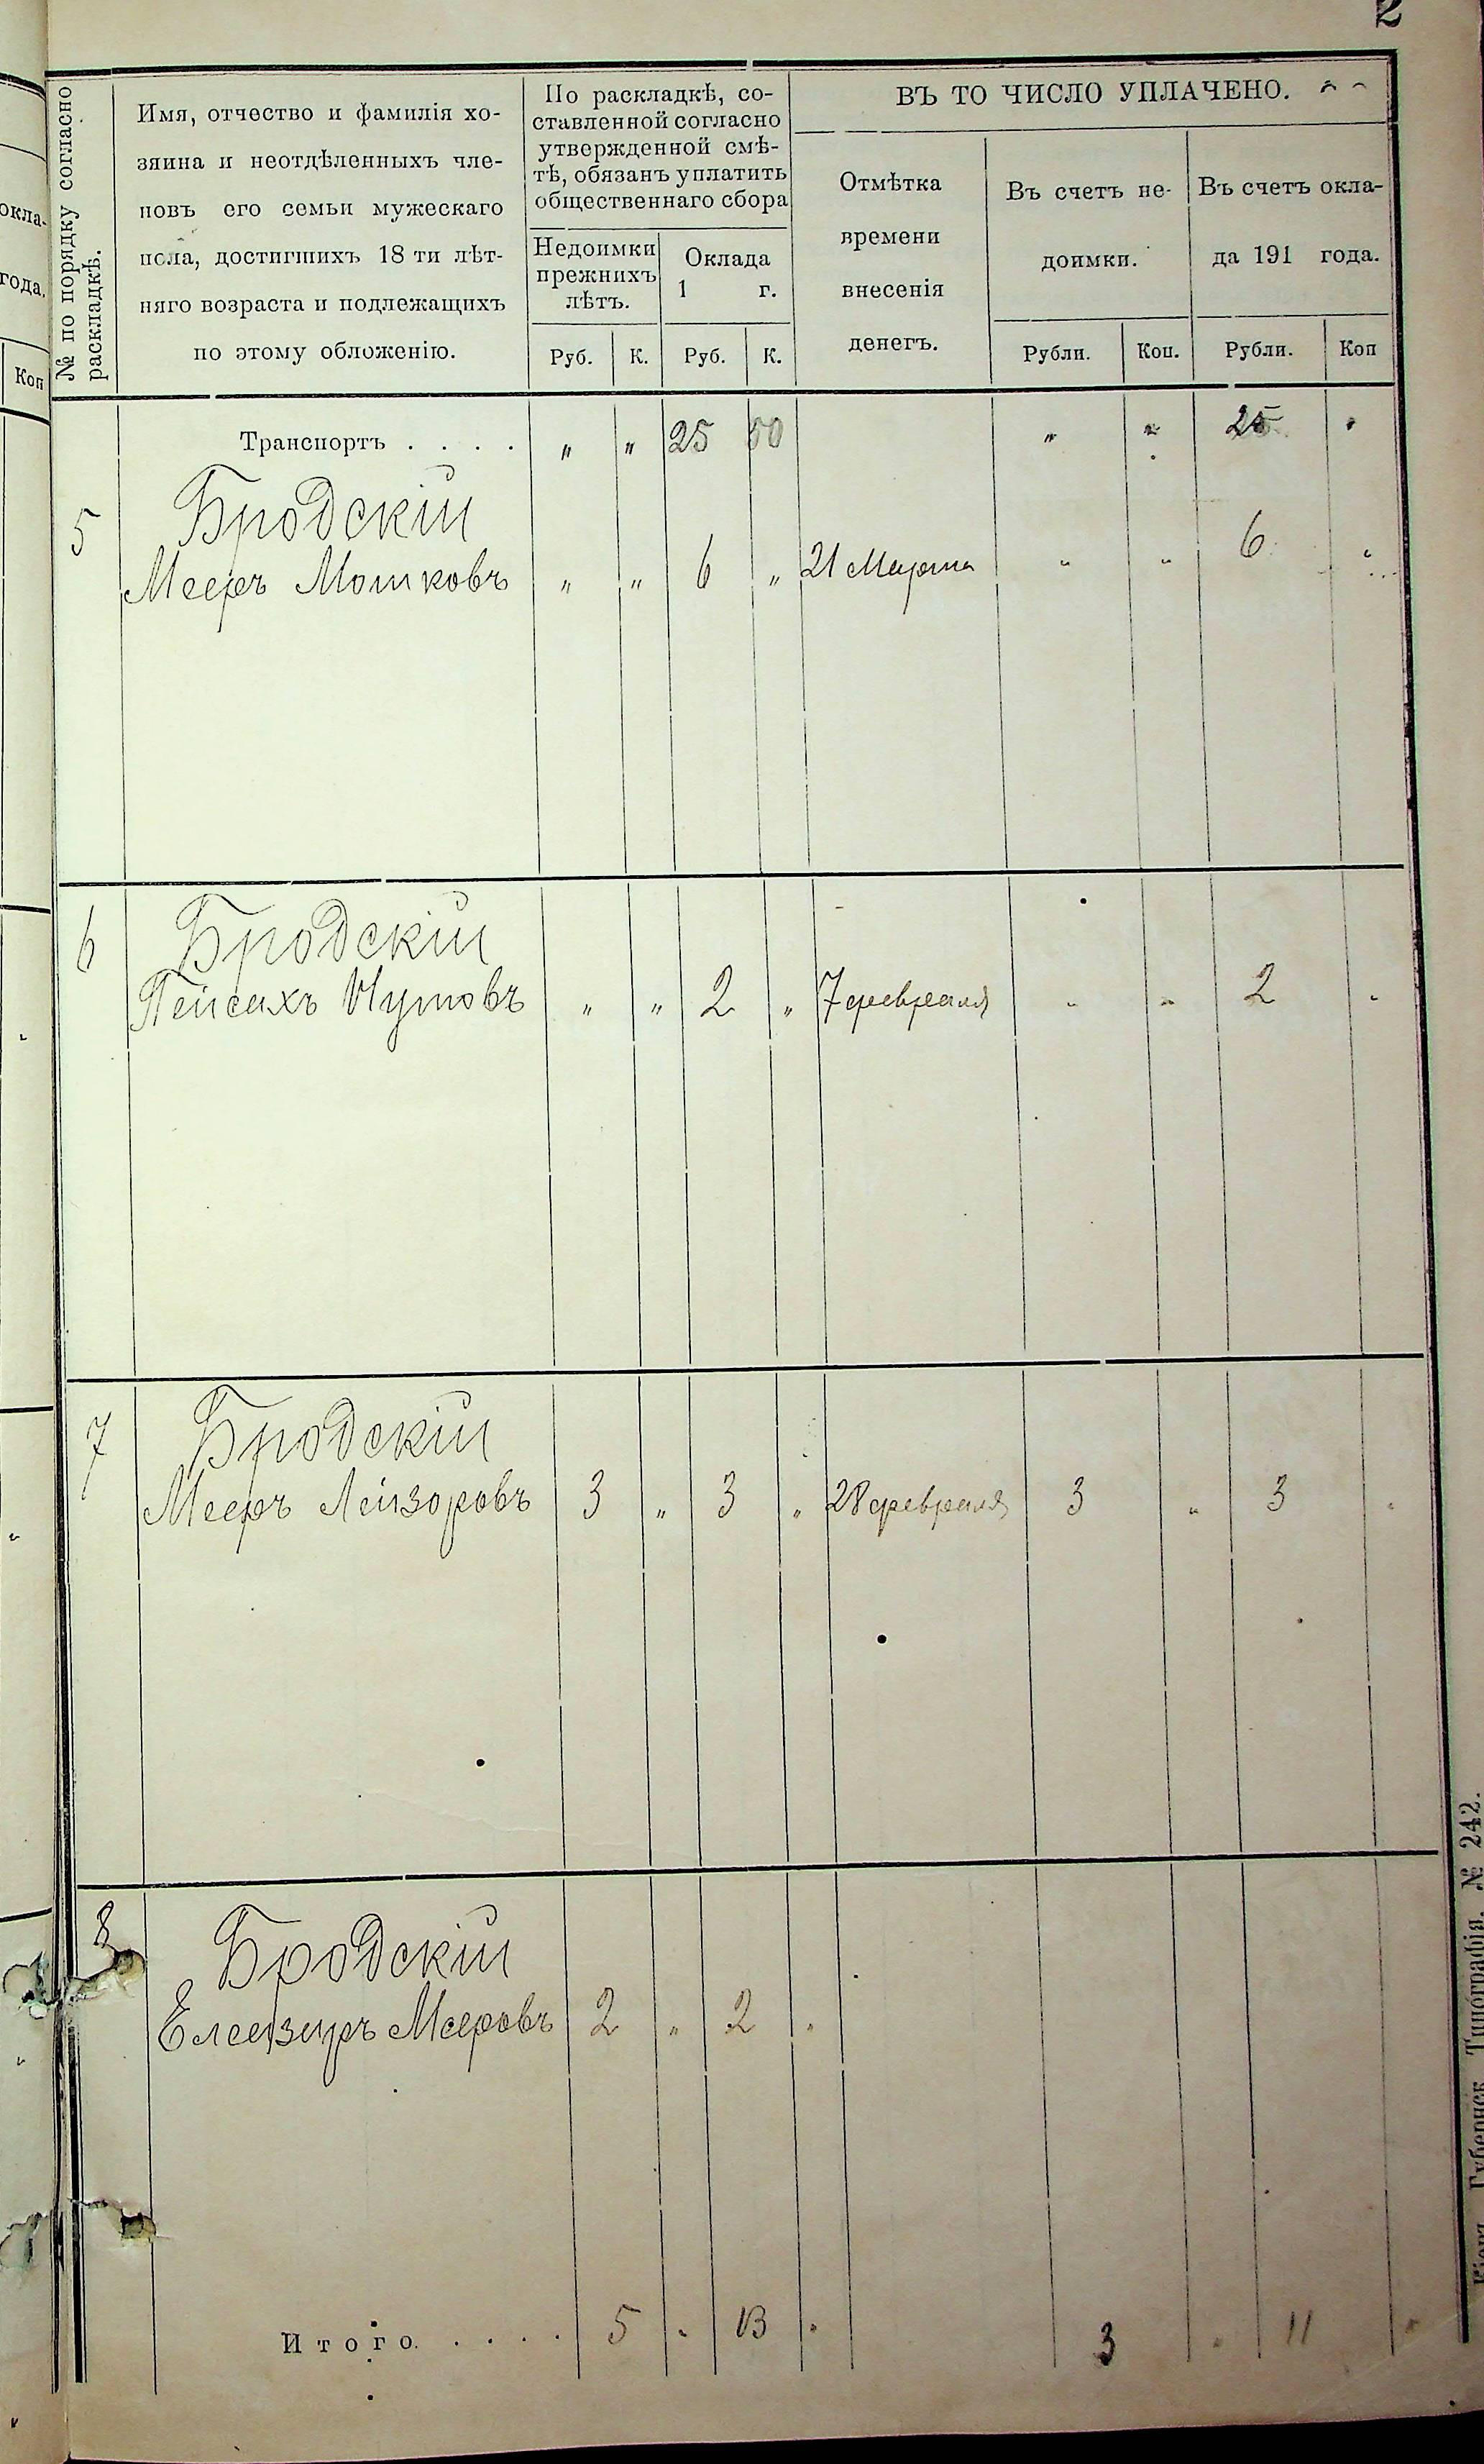 2
№ по порядку согласно
раскладкѣ.
Имя, отчество и фамилія хо-
зяина и неотдѣленныхъ чле-
новъ его семьи мужескаго
пола, достигшихъ 18 ти лѣт-
няго возраста и подлежащихъ
по этому обложенію.
По раскладкѣ, со-
ставленной согласно
утвержденной смѣ-
тѣ, обязанъ уплатить
общественнаго сбора
Недоимки
прежнихъ
лѣтъ.
Оклада
1 г.
Руб. К. Руб. К.
ВЪ ТО ЧИСЛО УПЛАЧЕНО.
Отмѣтка
времени
внесенія
денегъ.
Въ счетъ не-
доимки.
Въ счетъ окла-
да 191 года.
Рубли. Коп. Рубли. Коп
окла-
года.
Коп
Транспортъ . . . . „ „ 25 50 „ „ 25 „
5 Бродскій
Мееръ Мошковъ „ „ 6 „ 21 Марта „ „ 6 „
6 Бродскій
Пейсахъ Нутовъ „ „ 2 „ 7 февраля „ „ 2 „
7 Бродскій
Мееръ Лейзоровъ 3 „ 3 „ 28 февраля 3 „ 3 „
8 Бродскій
Елеизеръ Мееровъ 2 „ 2 „
Итого. . . . . 5 „ 13 „ 3 „ 11 „
Губернск. Типографія. № 242.